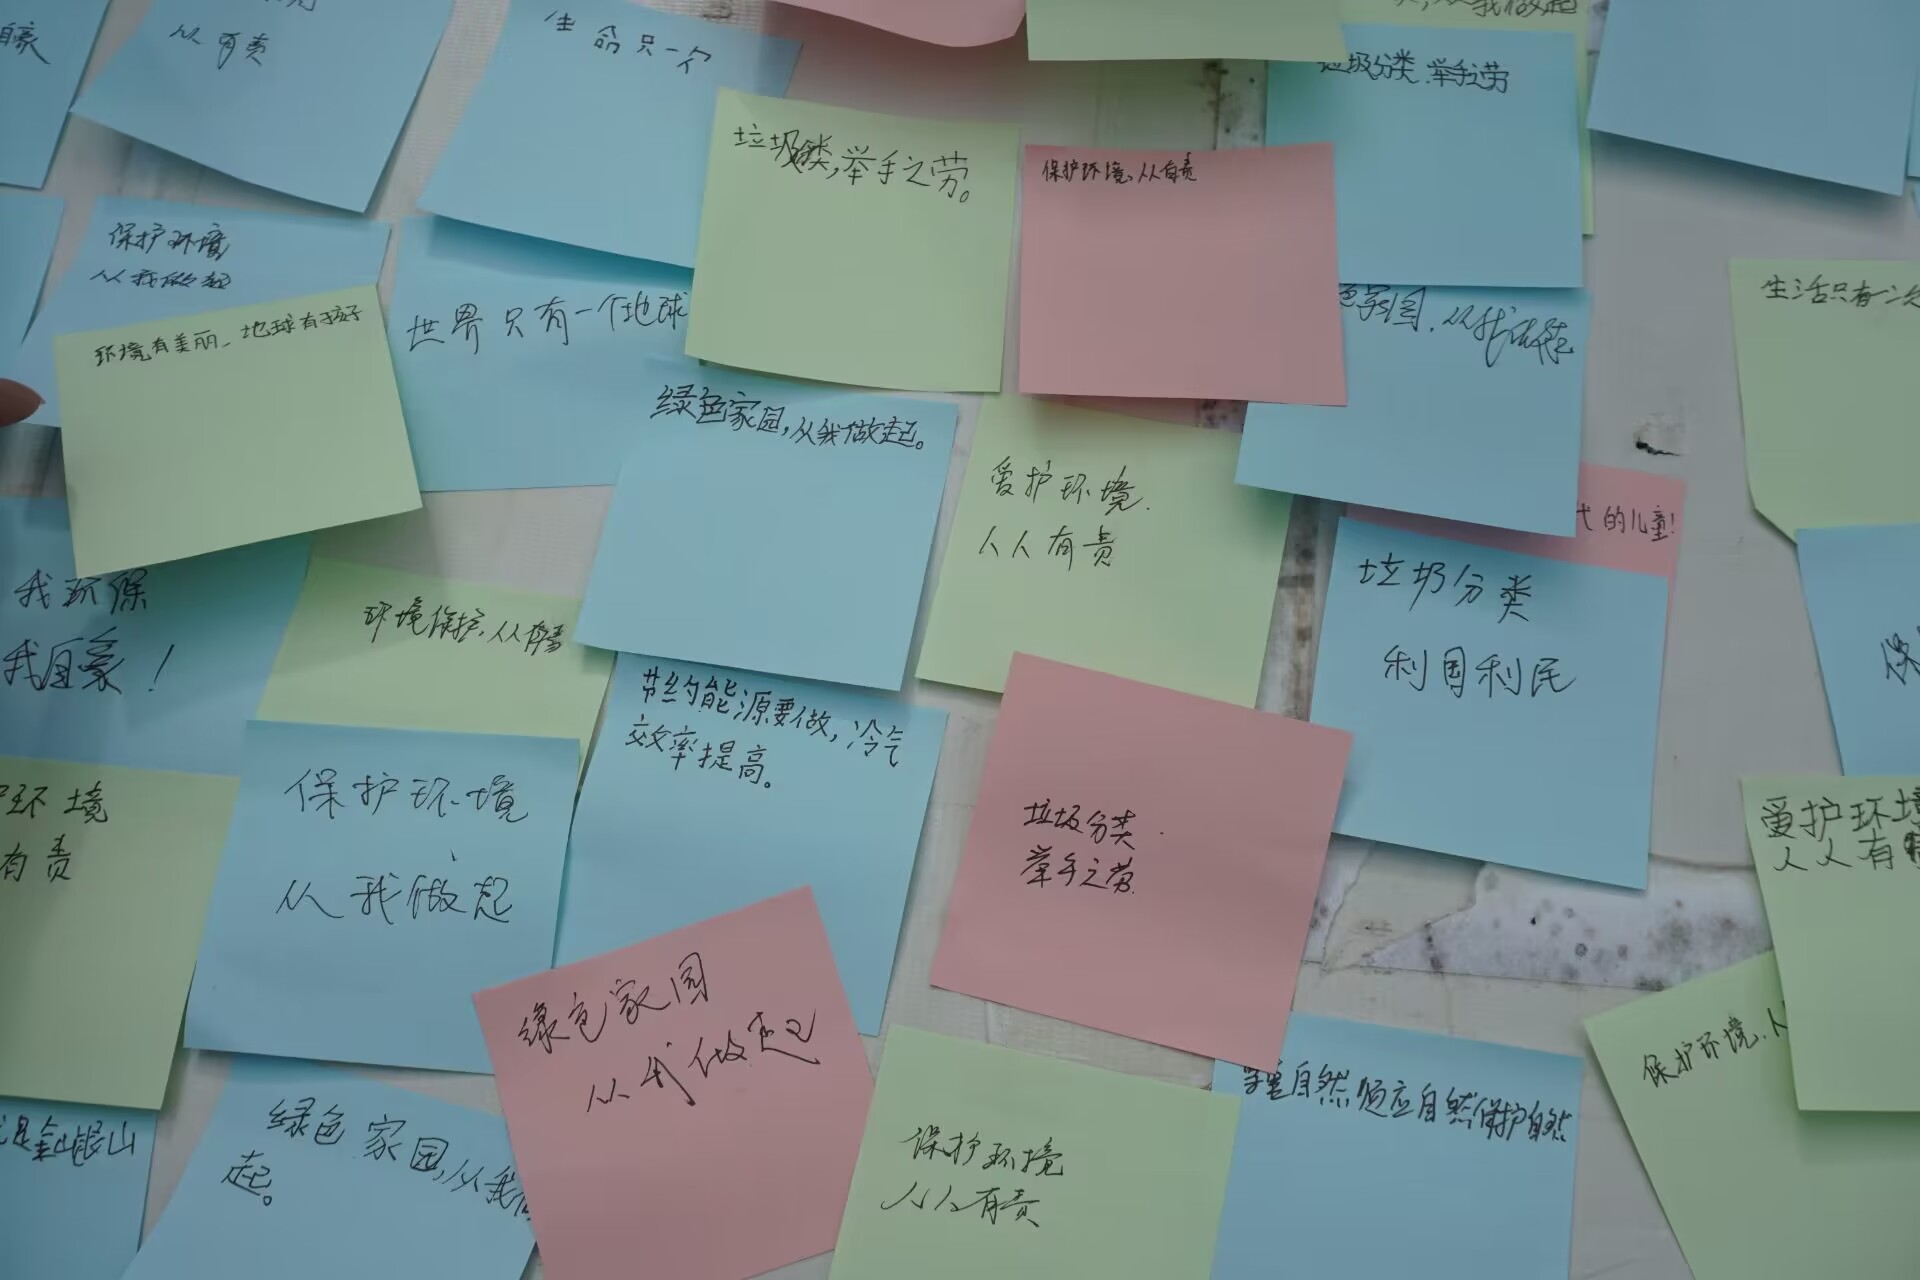 自豪
人有责
生命只一个
从我做起
垃圾分类,举手之劳
垃圾分类,举手之劳。
保护环境,人人有责
保护环境
从我做起
世界只有一个地球
环境有美丽、地球有孩好
色家园,从我做起
生活只有一次
绿色家园,从我做起。
爱护环境.
人人有责
代的儿童!
垃圾分类
利国利民
我环保
我自豪!
环境保护,人人有责
保
节约能源要做,冷气
效率提高。
保护环境
从我做起
护环境
有责
垃圾分类.
举手之劳.
爱护环境
人人有
绿色家园
从我做起
保护环境,人
自然 顺应自然 保护自然
绿色家园,从我
起。
保护环境
人人有责
是金山银山